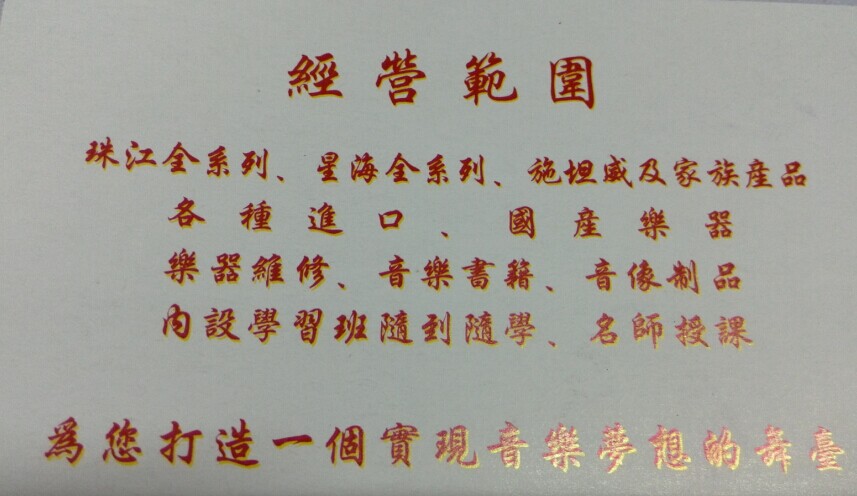 經營範圍
珠江全系列、星海全系列、施坦威及家族産品
各種進口、國産樂器
樂器維修、音樂書籍、音像制品
内設學習班隨到隨學、名師授課
為您打造一個實現音樂夢想的舞臺